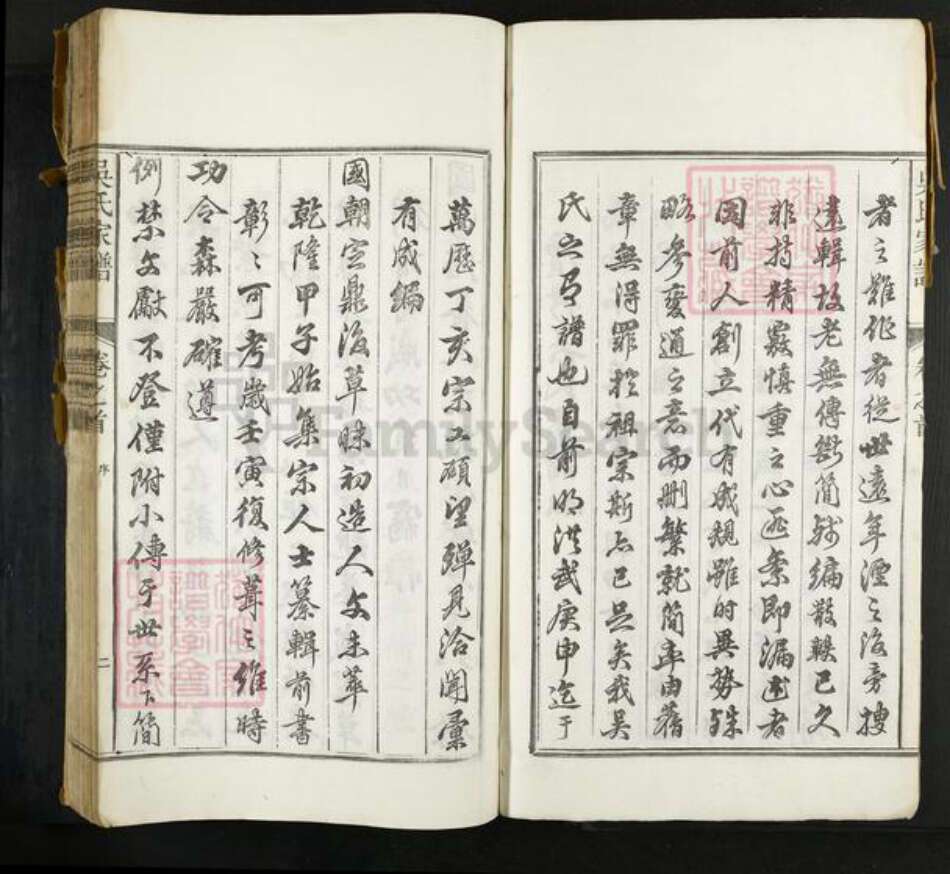 者之難作者從世遠年湮之後旁搜
遠輯故老無傳斷簡殘編散軼已久
非持精嚴慎重之心非紊即漏述者
因前人創立代有成規雖時異勢殊
略參變通之意而刪繁就簡率由舊
章無得罪於祖宗斯亦已足矣我吳
氏之有譜也自前明洪武庚申迄于
萬歷丁亥宗工碩望殫見洽聞彙
有成編
國朝定鼎後草昧初造人文未萃
乾隆甲子始集宗人士纂輯前書
彰彰可考歲壬寅復修葺之維時
功令森嚴確遵
例禁文獻不登僅附小傳于世系下簡
吳氏家譜
卷之首
序
二
FamilySearch